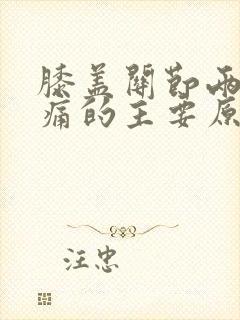 膝盖關節兩
痛的主要原
汪忠